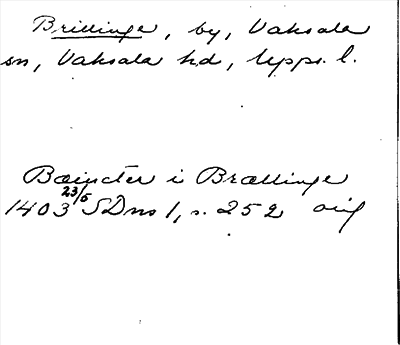 Brillinge, by, Vaksala
sn, Vaksala hd, Upps. l.
Bœincter i Brœllinge
1403 23/5 SDns 1, s. 252 orig